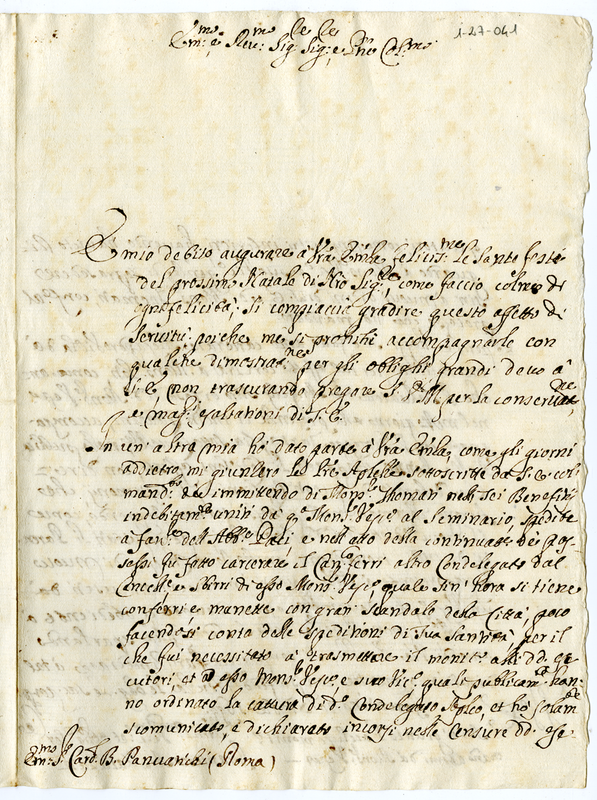 1-27-041
Em.mo e Rev.mo Sig.re Sig.re e P.rone Col.mo
È mio debito augurare à V.ra Em.za feliciss.me le Sante feste
del prossimo Natale di Nro Sig.re, come faccio colme di
ogni felicità; Si compiaccia gradire questo affetto di
Servitù, poiche me si prohibi accompagnarle con
qualche dimostrat.ne per gli oblighi grandi devo à
S. E., non trascurando pregare S. D. M. per la conservat.ne
e mag.ri esaltationi di S. E.
In un' altra mia hò dato parte à V.ra Em.za come gli giorni
addietro mi giunsero le Apl.che sottoscritte da S. E. col
mand.o de immittendo di Mons.r Thomari nelli sei Benefitii
indebitam.te uniti da q.sto Mons.r Vesc.o al Seminario, spedite
à fav.re dell' Abb.e Paci, e nell' atto della continuat.ne dei pos-
sessi hà fatto carcerare il Can.co Ferri altro Condelegato dal
Cancell.re e Sbirri di esso Mons.r Vesc.o, quale sin' hora si tiene
con ferri e manette con gran scandalo della Città, poco
facendosi conto delle speditioni di Sua Santità, per il
che fui necessitato à trasmettere il monit.o alli dd. ese-
cutori, et à esso Mons.r Vesc.o e suo Vic.o quali publicam.te han-
no ordinato la cattura di d.o Condelegato Aplco, et hò solam.te
scomunicato, e dichiarato incorsi nelle Censure dd. ese
Em.mo S. Card. B. Panciatichi (Roma)